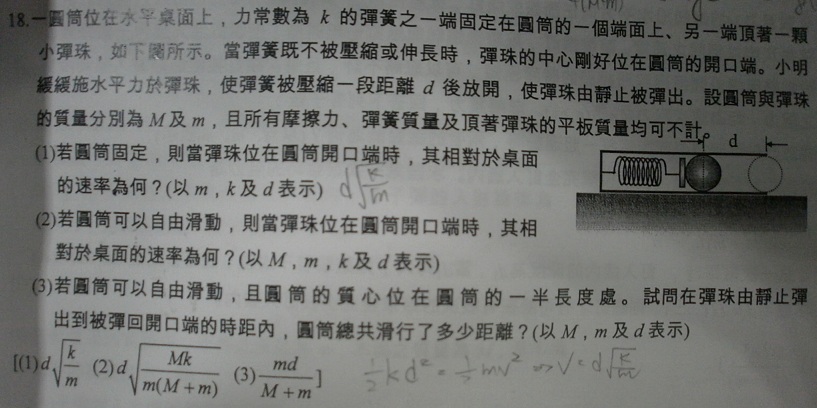 18.一圓筒位在水平桌面上，力常數為 k 的彈簧之一端固定在圓筒的一個端面上、另一端頂著一顆
小彈珠，如下圖所示。當彈簧既不被壓縮或伸長時，彈珠的中心剛好位在圓筒的開口端。小明
緩緩施水平力於彈珠，使彈簧被壓縮一段距離 d 後放開，使彈珠由靜止被彈出。設圓筒與彈珠
的質量分別為 M 及 m，且所有摩擦力、彈簧質量及頂著彈珠的平板質量均可不計。
d
(1)若圓筒固定，則當彈珠位在圓筒開口端時，其相對於桌面
的速率為何？(以 m，k 及 d 表示) d√(k/m)
(2)若圓筒可以自由滑動，則當彈珠位在圓筒開口端時，其相
對於桌面的速率為何？(以 M，m，k 及 d 表示)
(3)若圓筒可以自由滑動，且圓筒的質心位在圓筒的一半長度處。試問在彈珠由靜止彈
出到被彈回開口端的時距內，圓筒總共滑行了多少距離？(以 M，m 及 d 表示)
[(1) d√(k/m) (2) d√(Mk/m(M+m)) (3) md/M+m]
½kd² = ½mv² ⇒ V = d√(k/m)